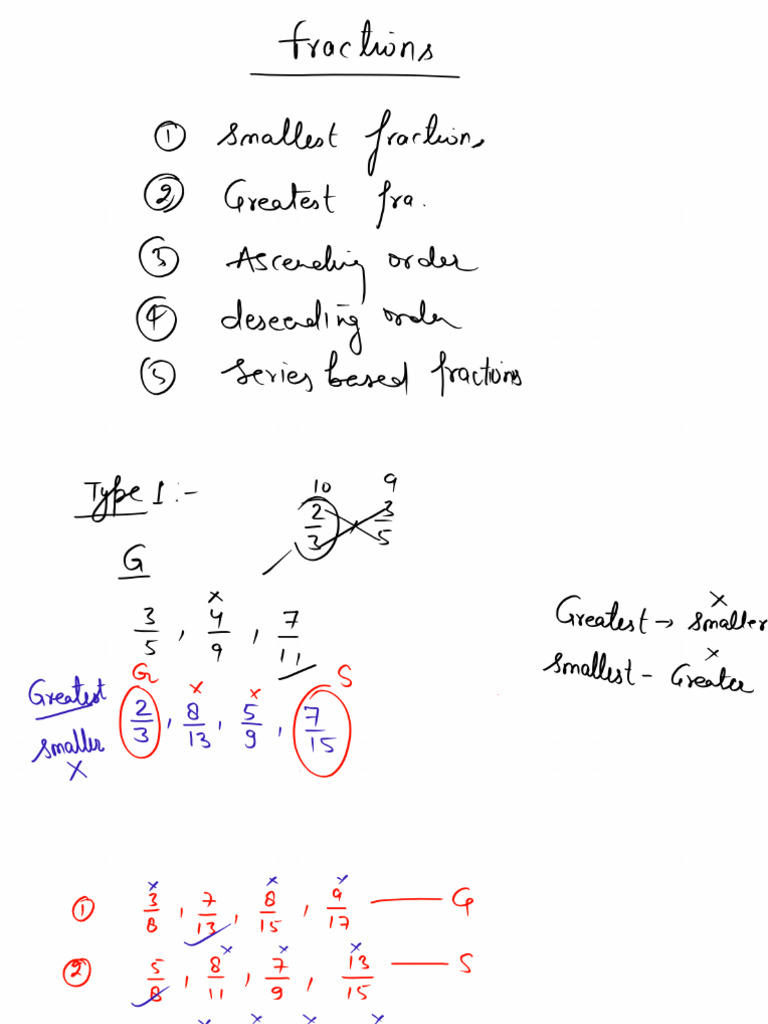 fractions
① Smallest fractions
② Greatest fra.
③ Ascending order
④ descending order
⑤ Series based fractions
Type 1 :-
10 9
2/3 3/5
G
3/5 , 4/9 , 7/11
×
Greatest → smaller
×
Smallest - Greater
×
G × × S
Greatest 2/3 , 8/13 , 5/9 , 7/15
smaller
×
× × ×
① 3/8 , 7/13 , 8/15 , 9/17 — G
× × ×
② 5/8 , 8/11 , 7/9 , 13/15 — S
× × × ×